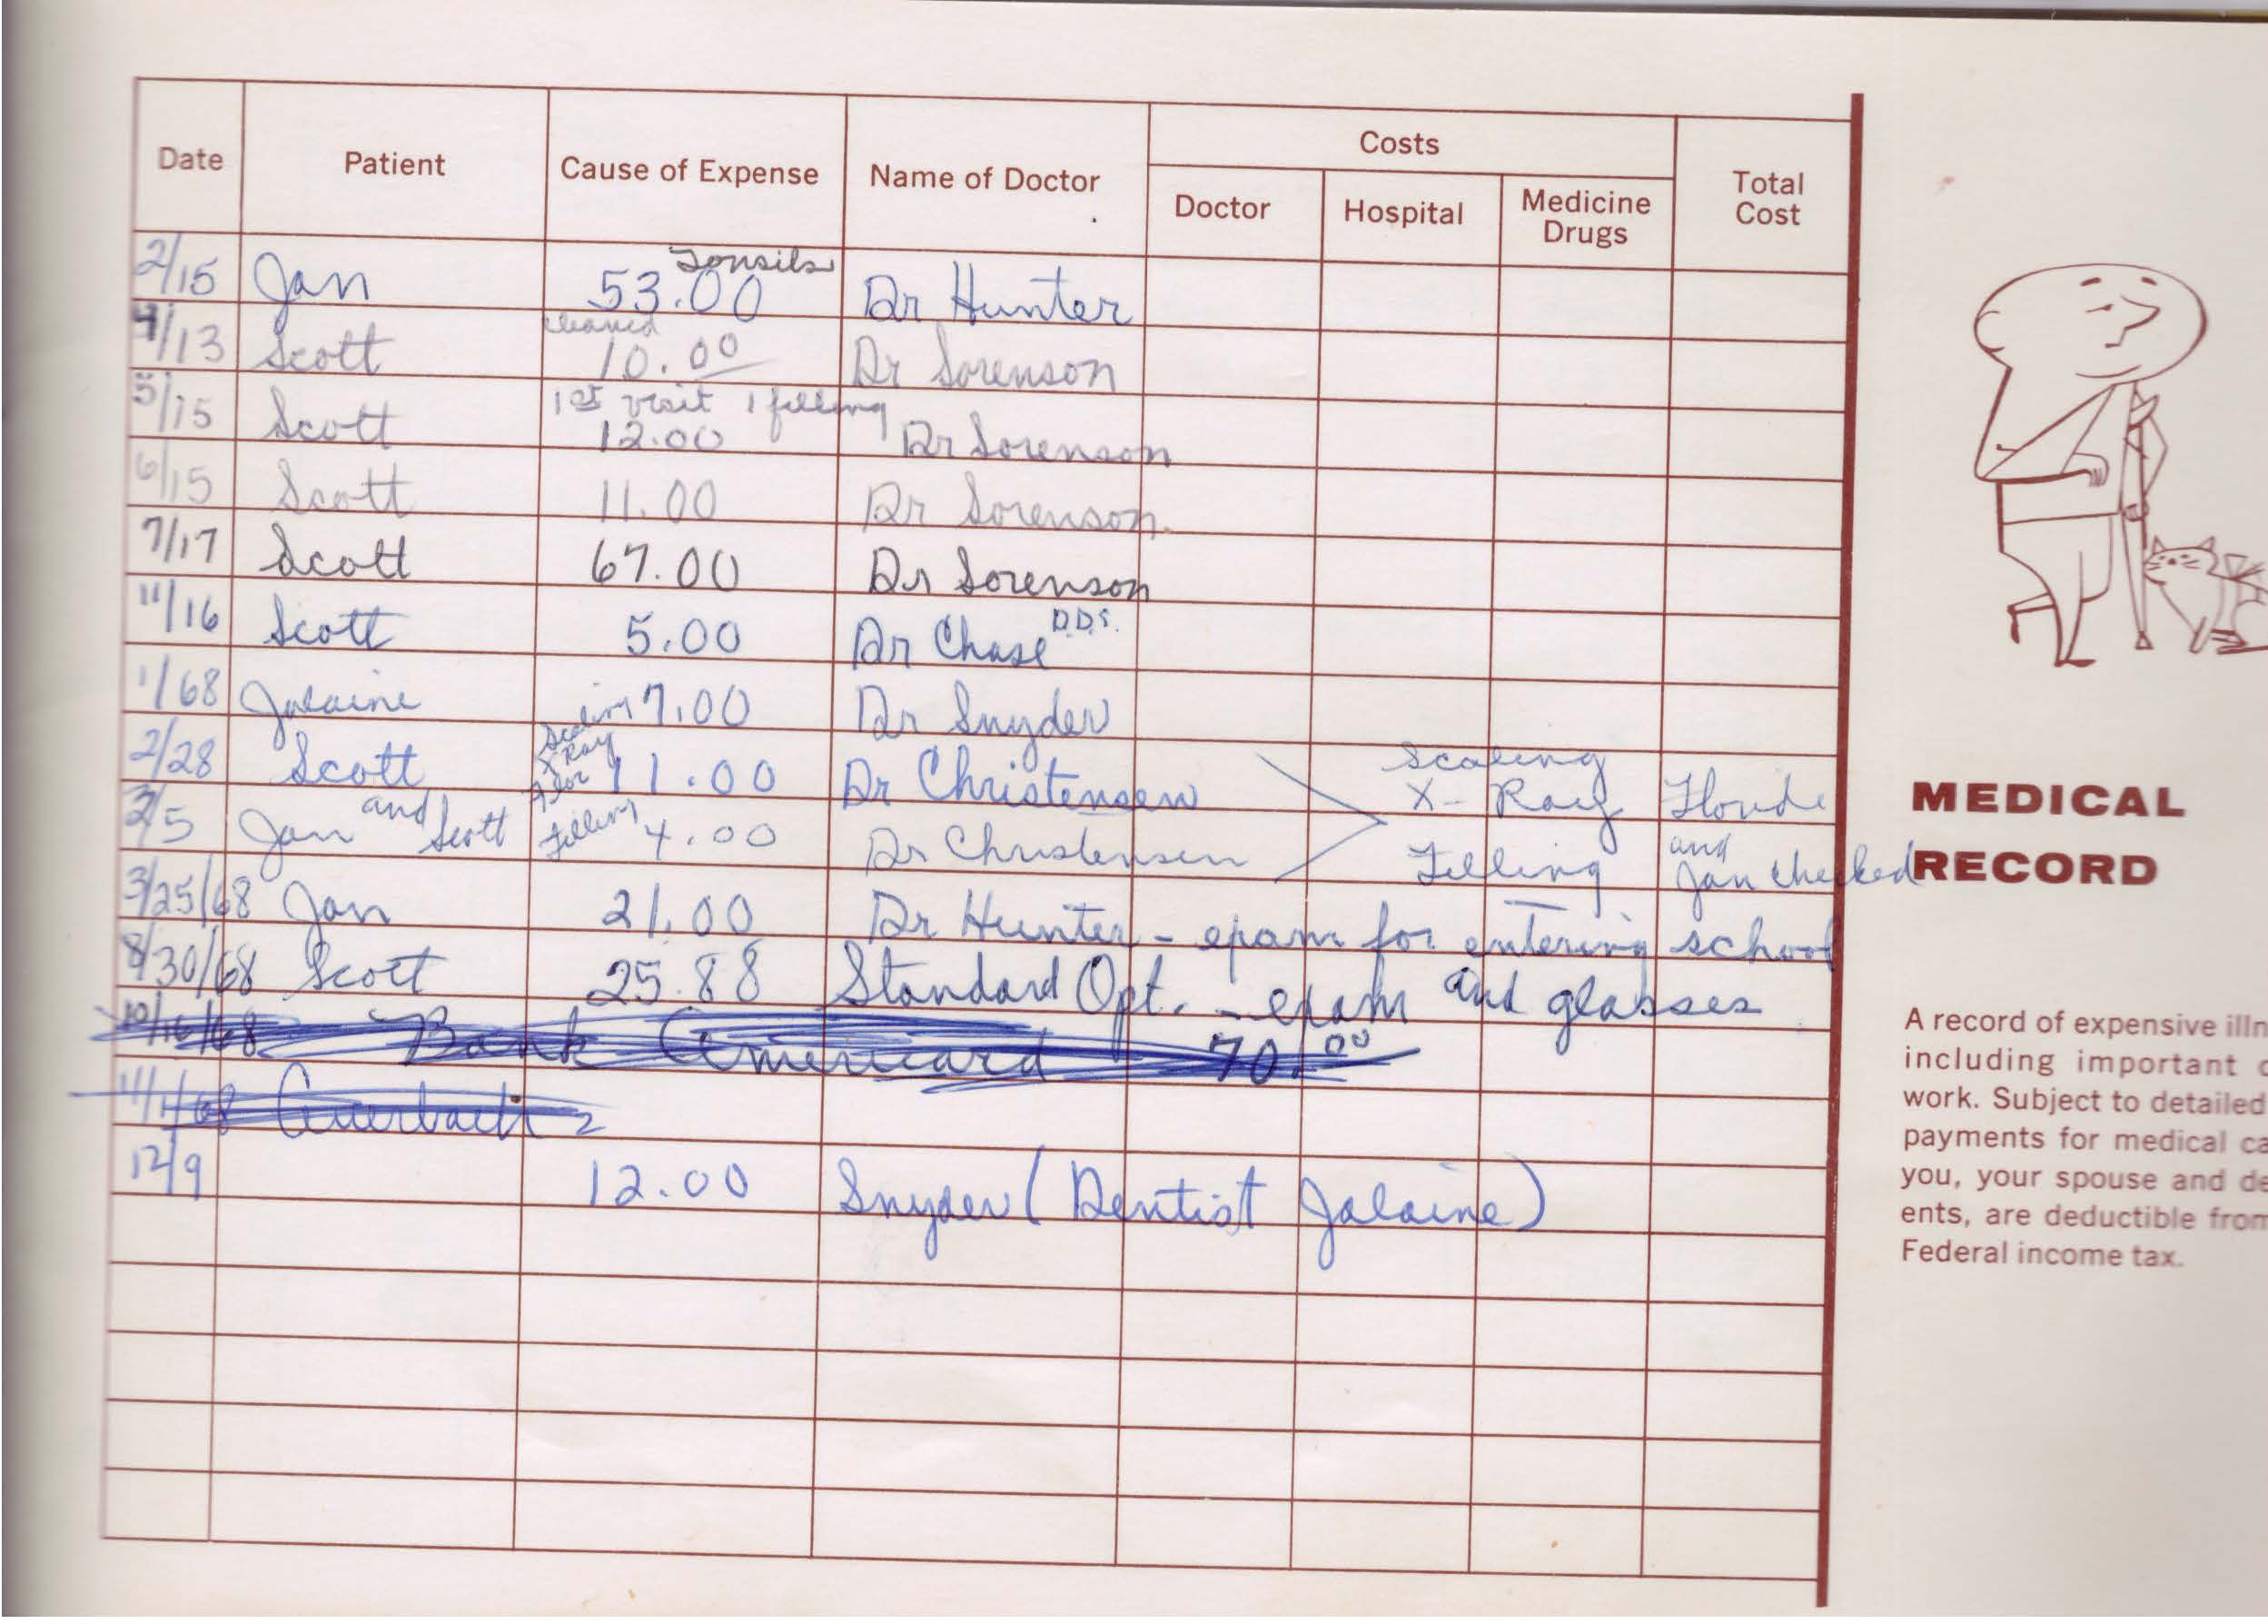 Date Patient Cause of Expense Name of Doctor Costs Total Cost
Doctor Hospital Medicine Drugs
Tonsils
2/15 Jan 53.00 Dr Hunter
cleaned
4/13 Scott 10.00 Dr Sorenson
1st visit 1 filling
5/15 Scott 12.00 Dr Sorenson
6/15 Scott 11.00 Dr Sorenson
7/17 Scott 67.00 Dr Sorenson
11/16 Scott 5.00 Dr Chase D.D.S.
1/68 Jalaine 7.00 Dr Snyder
Scaling
X Ray
Flor
2/28 Scott 11.00 Dr Christensen Scaling X-Ray Floride
3/5 Jan and Scott Filling 4.00 Dr Christensen Filling and Jan checked
3/25/68 Jan 21.00 Dr Hunter - exam for entering school
8/30/68 Scott 25.88 Standard Opt. - exam and glasses
10/16/68 Bank Americard 70.00
11/1/68 Auerbach
12/9 12.00 Snyder (Dentist Jalaine)
MEDICAL
RECORD
A record of expensive illn
including important
work. Subject to detailed
payments for medical ca
you, your spouse and de
ents, are deductible from
Federal income tax.